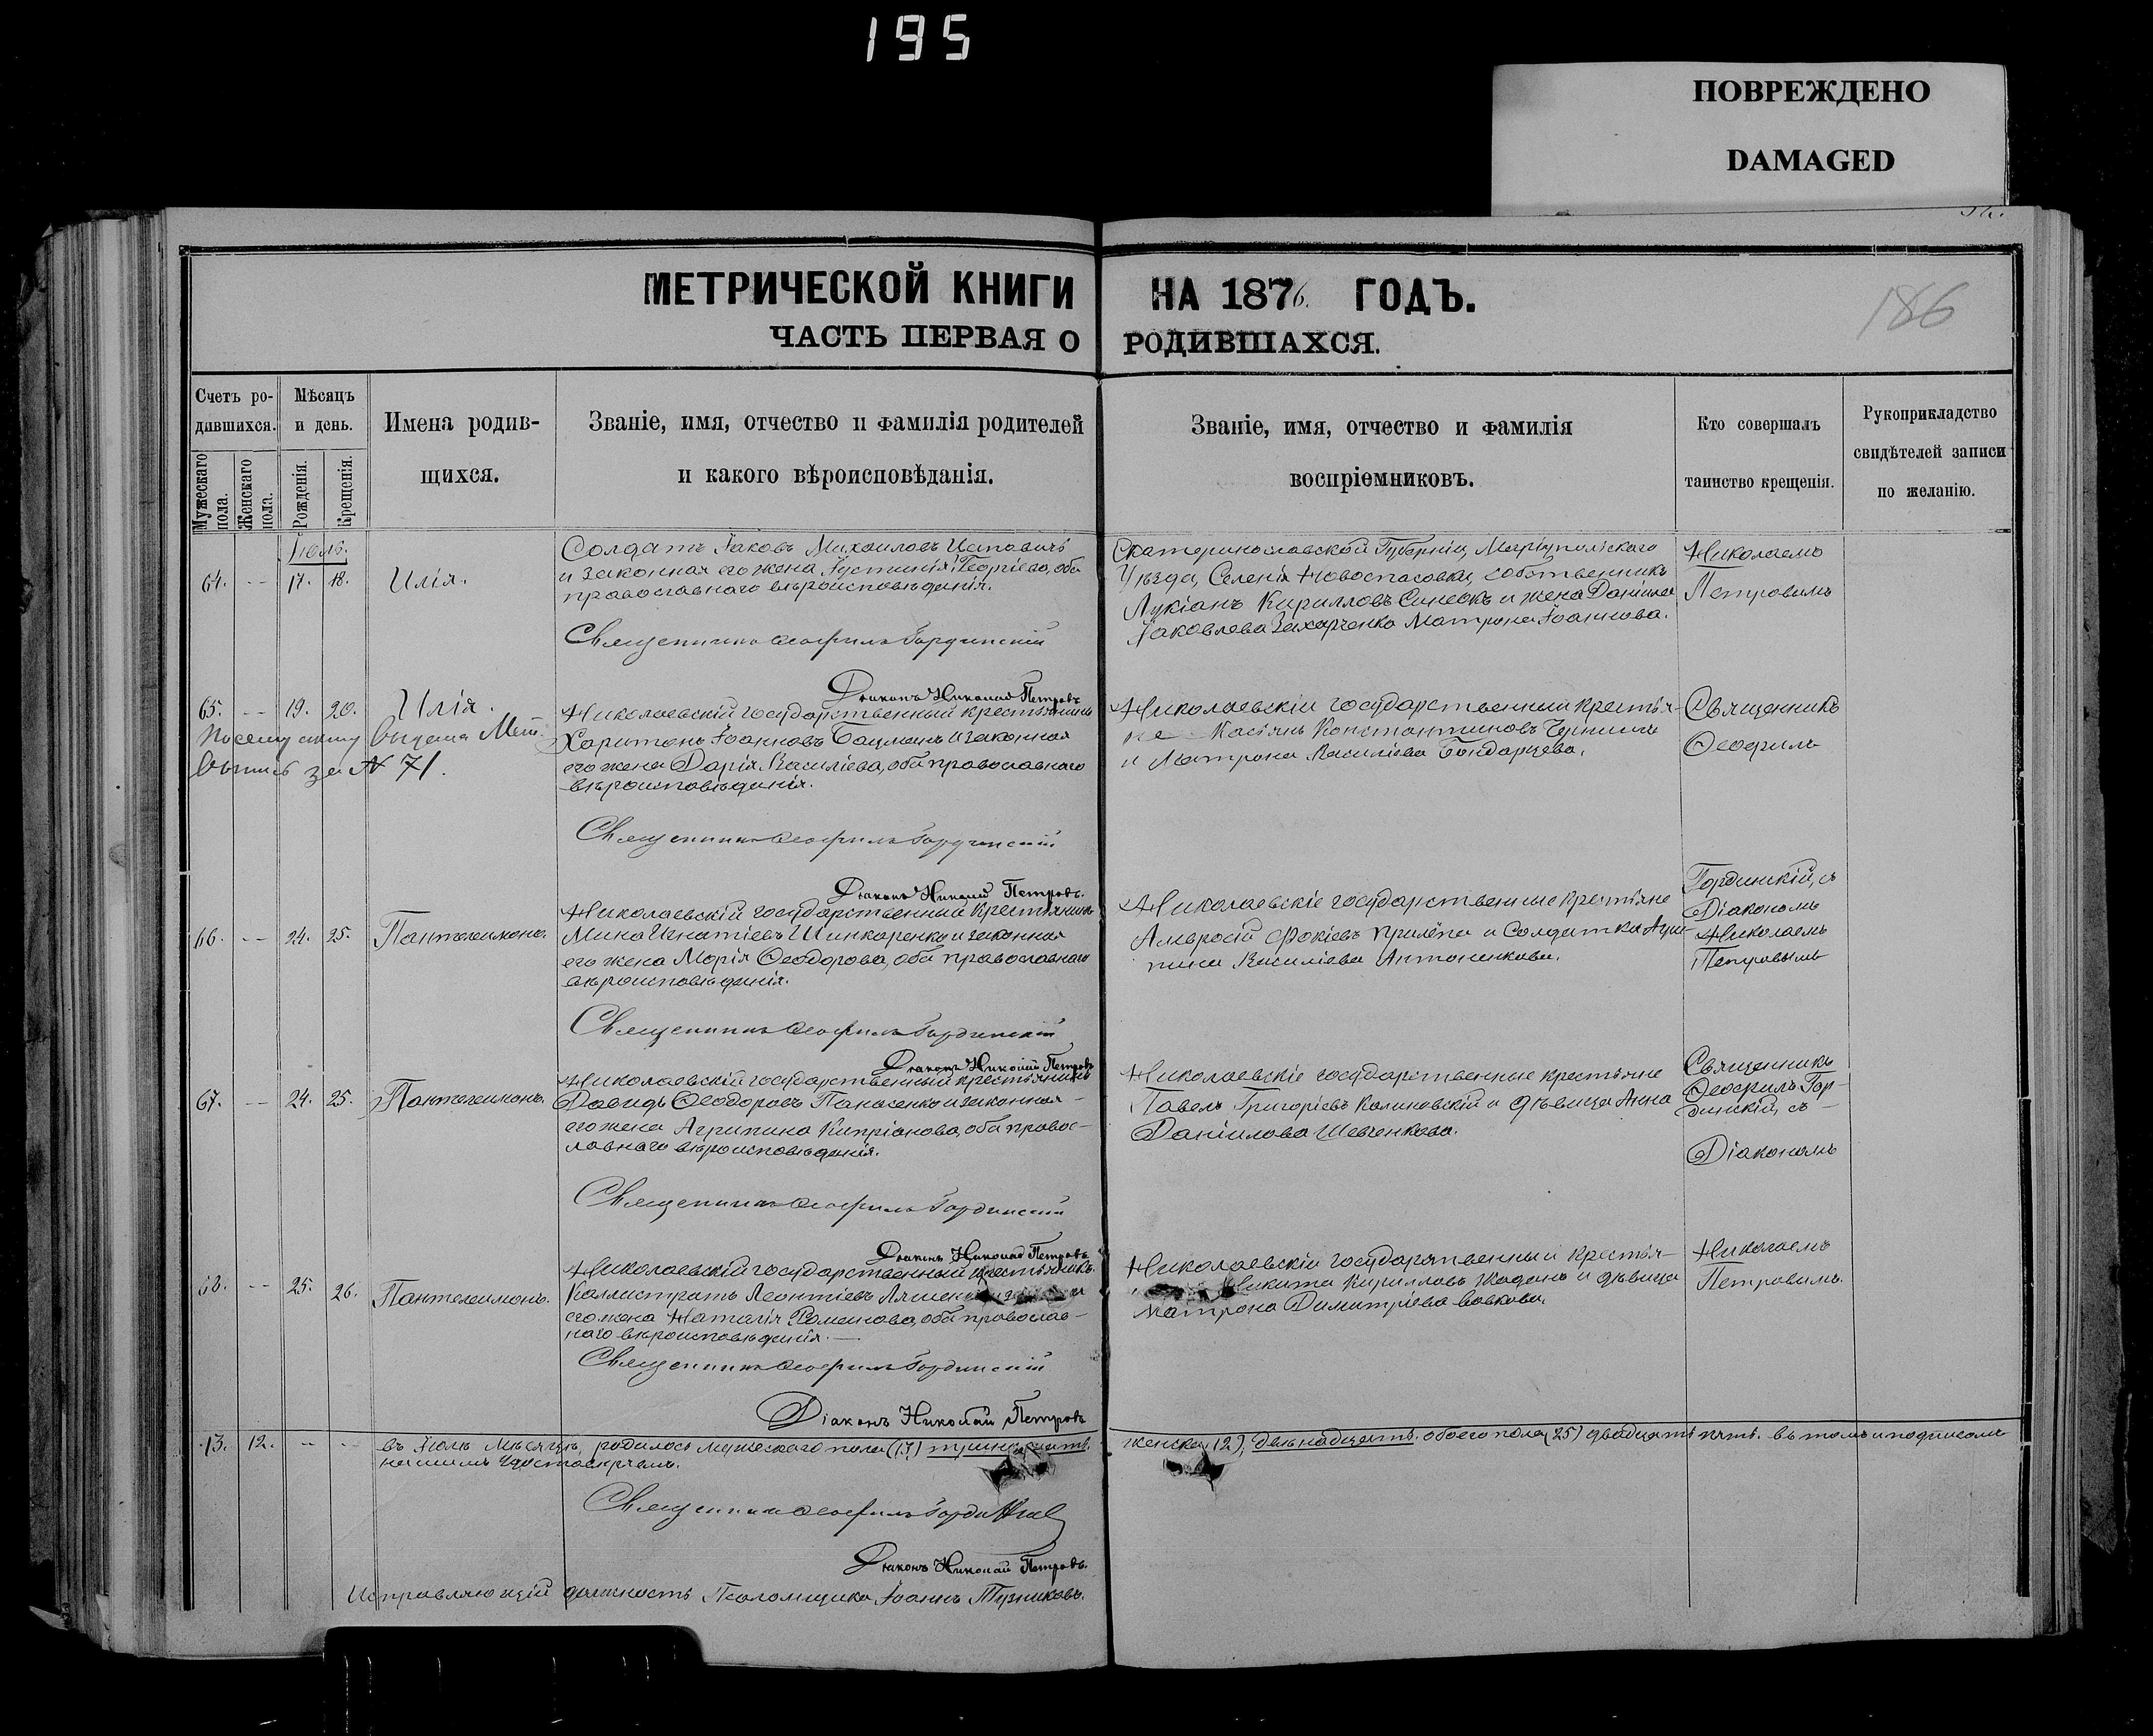 195
ПОВРЕЖДЕНО
DAMAGED
МЕТРИЧЕСКОЙ КНИГИ НА 1876. ГОДЪ.
186
ЧАСТЬ ПЕРВАЯ О РОДИВШАХСЯ.
Счетъ родившихся.
Мужескаго пола.
Женскаго пола.
Мѣсяцъ и день.
Рожденія.
Крещенія.
Имена родившихся.
Званіе, имя, отчество и фамилія родителей
и какого вѣроисповѣданія.
Званіе, имя, отчество и фамилія
воспріемниковъ.
Кто совершалъ
таинство крещенія.
Рукоприкладство
свидѣтелей записи
по желанію.
Іюль.
64. -- 17. 18. Илія.
Солдатъ Іаковъ Михаиловъ
и законная его жена Іустинія Георгіева, оба
православнаго вѣроисповѣданія.
Священникъ Ѳеофилъ Гординскій
Діаконъ Николай Петровъ
Екатеринославской Губерніи, Маріупольскаго
Уѣзда, Селенія Новоспасовки, собственникъ
Лукіанъ Кирилловъ Синеокъ и жена Даніила
Іаковлева Захарченко Матрона Іоаннова.
Николаемъ
Петровымъ
65. -- 19. 20. Илія.
По сему акту выдана Мет.
Выпись за № 71.
Николаевскій государственный крестьянинъ
Харитонъ Іоанновъ Бацманъ и законная
его жена Дарія Василіева, оба православнаго
вѣроисповѣданія.
Священникъ Ѳеофилъ Гординскій
Діаконъ Николай Петровъ.
Николаевскіи государственныи крестья-
не Касьянъ Константиновъ
и Матрона Василіева Бондарцева.
Священникъ
Ѳеофилъ
66. -- 24. 25. Пантелеимонъ.
Николаевскій государственный крестьянинъ
Мина Игнатіевъ Шинкаренко и законная
его жена Марія Ѳеодорова, оба православнаго
вѣроисповѣданія.
Священникъ Ѳеофилъ Гординскій
Діаконъ Николай Петровъ
Николаевскіе государственные крестьяне
Амвросій Фокіевъ Прилёпа и Солдатка Агри-
пина Василіева Антоненкова.
Гординскій, съ
Діакономъ
Николаемъ
Петровымъ
67. -- 24. 25. Пантелеимонъ.
Николаевскій государственный крестьянинъ
Давидъ Ѳеодоровъ Панасенко и законная
его жена Агрипина Кипріанова, оба право-
славнаго вѣроисповѣданія.
Священникъ Ѳеофилъ Гординскій
Діаконъ Николай Петровъ
Николаевскіе государственные крестьяне
Павелъ Григоріевъ Калиновскій и дѣвица Анна
Даніилова Шевченкова.
Священникъ
Ѳеофилъ Гор-
динскій, съ
Діакономъ
68. -- 25. 26. Пантелеимонъ.
Николаевскій государственный крестьянинъ
Каллистратъ Леонтіевъ
его жена Наталія Романова, оба православ-
наго вѣроисповѣданія.
Священникъ Ѳеофилъ Гординскій
Діаконъ Николай Петровъ
Николаевскіи государственныи крестья-
Никита Кирилловъ Жаданъ и дѣвица
Матрона Димитріева Вовкова.
Николаемъ
Петровымъ.
13. 12. -- -- въ Іюлѣ мѣсяцѣ, родилось мужескаго пола (13) тринадцать. женска (12), двѣнадцать. обоего пола (25) двадцать пять. въ томъ и подписомъ
нашимъ удостовѣряемъ.
Священникъ Ѳеофилъ Гординскій
Діаконъ Николай Петровъ.
Исправляющій должность Псаломщика Іоаннъ